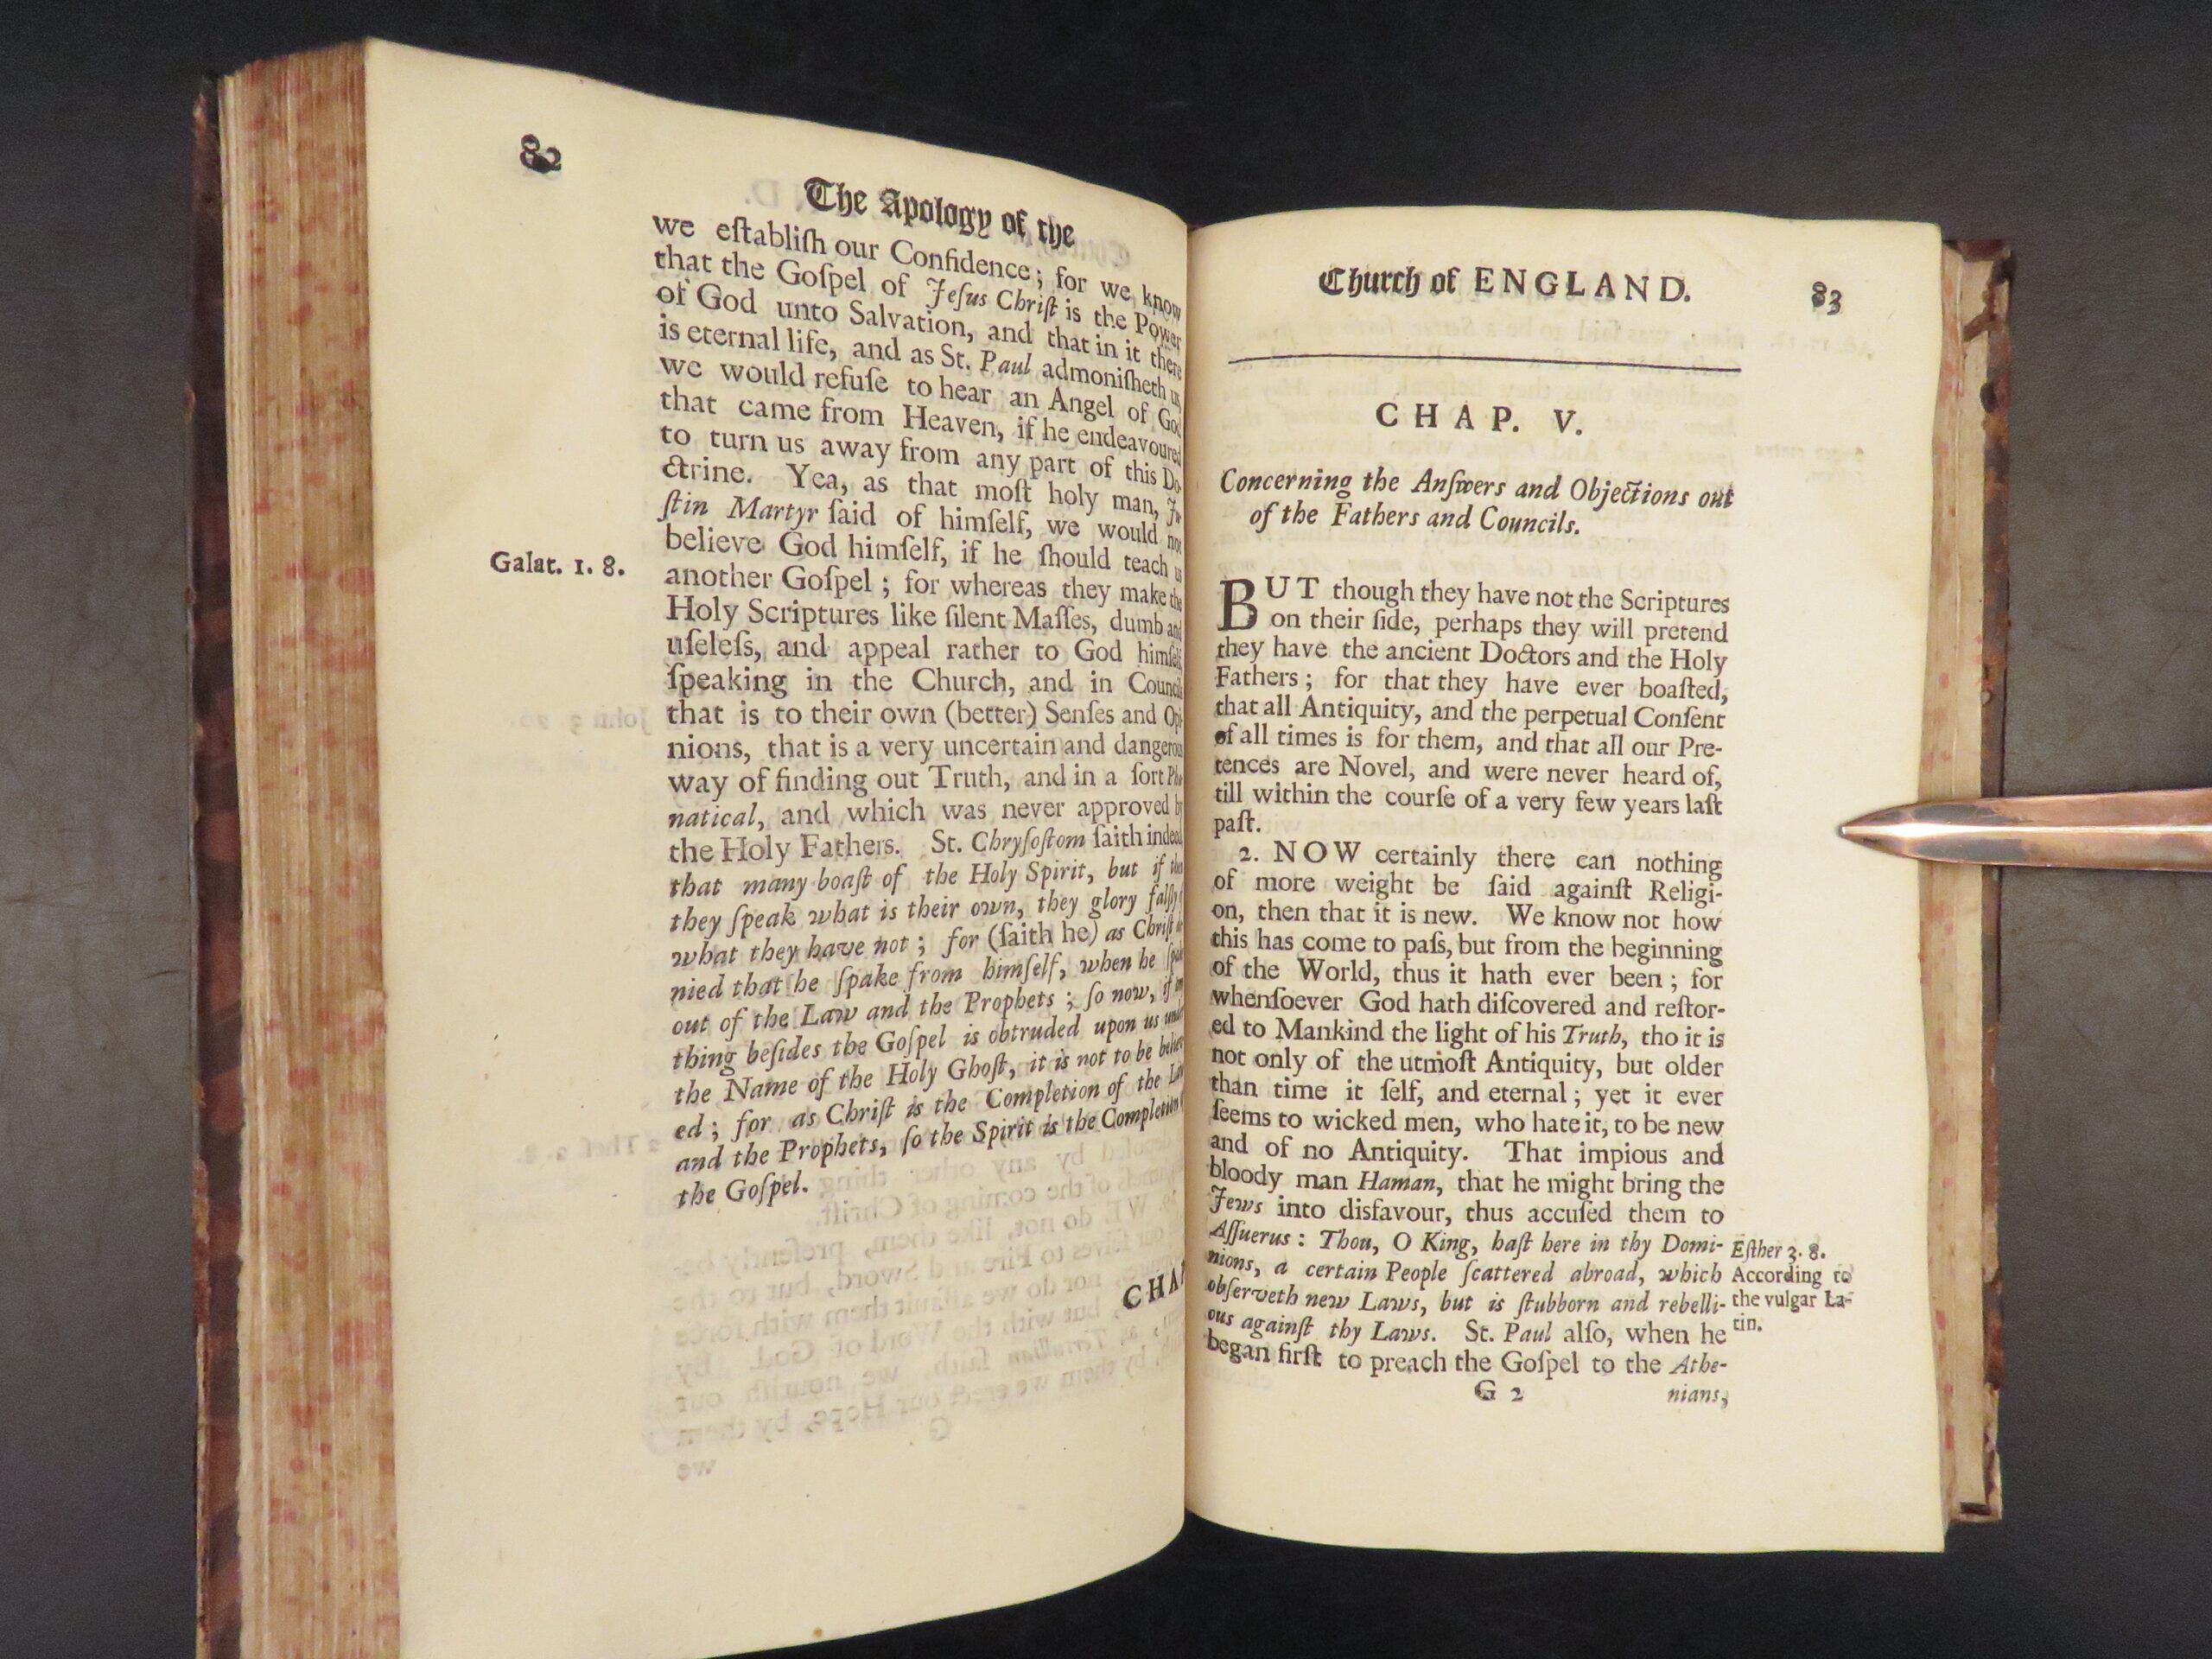 82
The Apology of the
we eſtabliſh our Confidence; for we know
that the Goſpel of Jeſus Chriſt is the Power
of God unto Salvation, and that in it there
is eternal life, and as St. Paul admoniſheth us,
we would refuſe to hear an Angel of God
that came from Heaven, if he endeavoured
to turn us away from any part of this Do-
ctrine. Yea, as that moſt holy man, Ju-
ſtin Martyr ſaid of himſelf, we would not
Galat. 1. 8.
believe God himſelf, if he ſhould teach us
another Goſpel; for whereas they make the
Holy Scriptures like ſilent Maſſes, dumb and
uſeleſs, and appeal rather to God himſelf
ſpeaking in the Church, and in Councils
that is to their own (better) Senſes and Opi-
nions, that is a very uncertain and dangerous
way of finding out Truth, and in a ſort
natical, and which was never approved by
the Holy Fathers. St. Chryſoſtom ſaith indeed
that many boaſt of the Holy Spirit, but if
they ſpeak what is their own, they glory falſly
what they have not; for (ſaith he) as Chriſt
nied that he ſpake from himſelf, when he
out of the Law and the Prophets; ſo now, if
thing beſides the Goſpel is obtruded upon us under
the Name of the Holy Ghoſt, it is not to be believ-
ed; for as Chriſt is the Completion of the Law
and the Prophets, ſo the Spirit is the Completion
the Goſpel.
CHAP
Church of ENGLAND.
83
CHAP. V.
Concerning the Anſwers and Objections out
of the Fathers and Councils.
BUT though they have not the Scriptures
on their ſide, perhaps they will pretend
they have the ancient Doctors and the Holy
Fathers; for that they have ever boaſted,
that all Antiquity, and the perpetual Conſent
of all times is for them, and that all our Pre-
tences are Novel, and were never heard of,
till within the courſe of a very few years laſt
paſt.
2. NOW certainly there can nothing
of more weight be ſaid againſt Religi-
on, then that it is new. We know not how
this has come to paſs, but from the beginning
of the World, thus it hath ever been; for
whenſoever God hath diſcovered and reſtor-
ed to Mankind the light of his Truth, tho it is
not only of the utmoſt Antiquity, but older
than time it ſelf, and eternal; yet it ever
ſeems to wicked men, who hate it, to be new
and of no Antiquity. That impious and
bloody man Haman, that he might bring the
Jews into disfavour, thus accuſed them to
Aſſuerus: Thou, O King, haſt here in thy Domi-
nions, a certain People ſcattered abroad, which
obſerveth new Laws, but is ſtubborn and rebelli-
ous againſt thy Laws. St. Paul alſo, when he
began firſt to preach the Goſpel to the Athe-
Eſther 3. 8.
According to
the vulgar La-
tin.
G 2
nians,